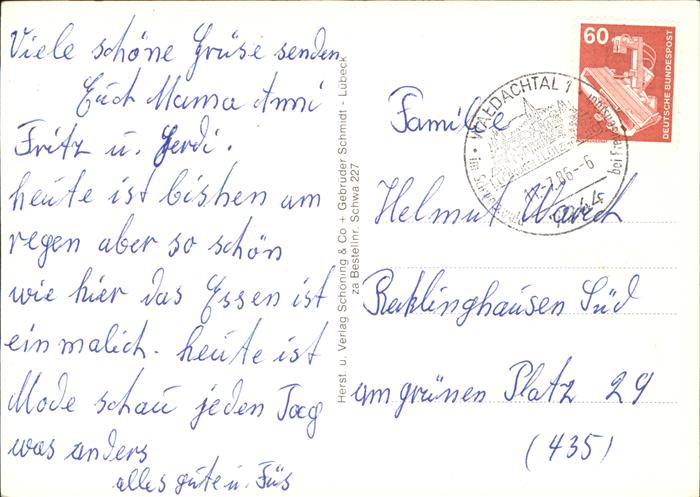 Viele schöne Grüse senden
Euch Mama Anni
Fritz u. Gerdi.
heute ist bishen am
regen aber so schön
wie hier das Essen ist
einmalich. heute ist
Mode schau jeden Tag
was anders
alles gute u. Füs
Herst. u. Verlag Schöning & Co + Gebrüder Schmidt - Lübeck
za Bestellnr. Schwa 227
60
DEUTSCHE BUNDESPOST
WALDACHTAL 1
17.-7.86-6
bei
7244
Familie
Helmut
Recklinghausen Süd
am grünen Platz 29
(435)